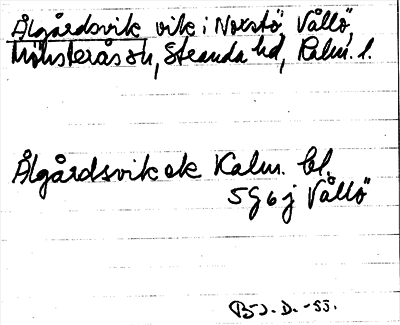 Ålgårdsvik vik i Noxstö, Vållö,
Mönsterås sn, Stranda hd, Kalm. l.
Ålgårdsvik ek Kalm. bl.
5G6j Vållö
B5J. D. -55.